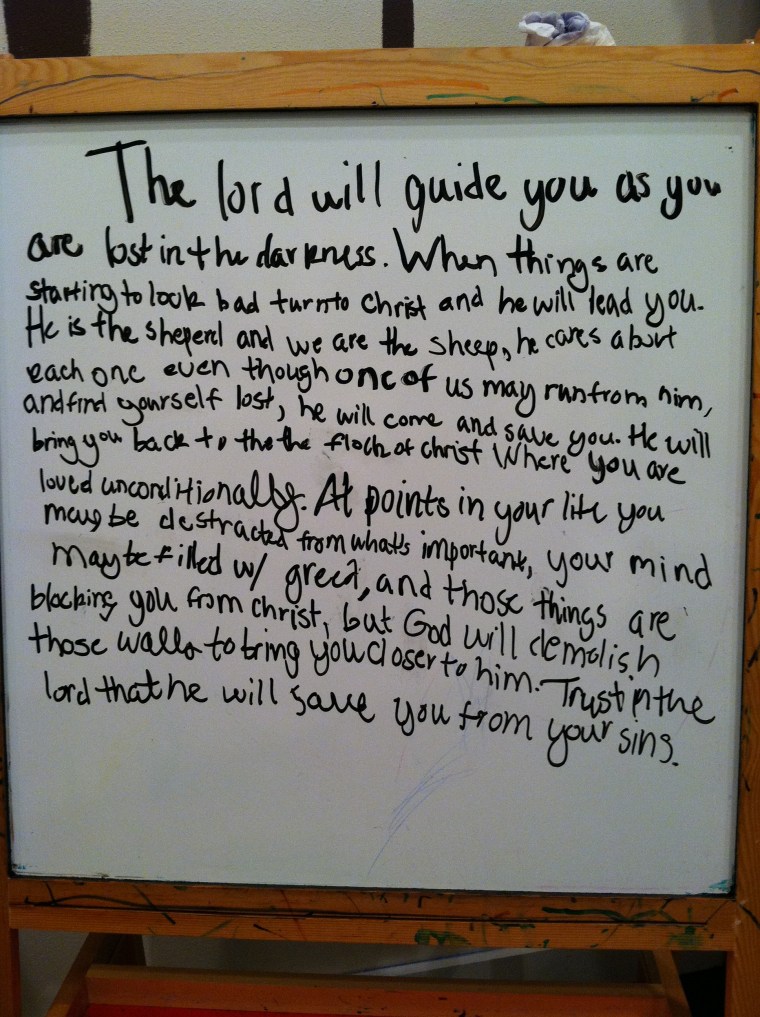 The lord will guide you as you
are lost in the darkness. When things are
starting to look bad turn to Christ and he will lead you.
He is the sheperd and we are the sheep, he cares about
each one even though one of us may run from him,
and find yourself lost, he will come and save you. He will
bring you back to the the flock of christ Where you are
loved unconditionally. At points in your life you
may be destracted from whats important, your mind
may be filled w/ greed, and those things are
blocking you from christ, but God will demolish
those walls to bring you closer to him. Trust in the
lord that he will save you from your sins.